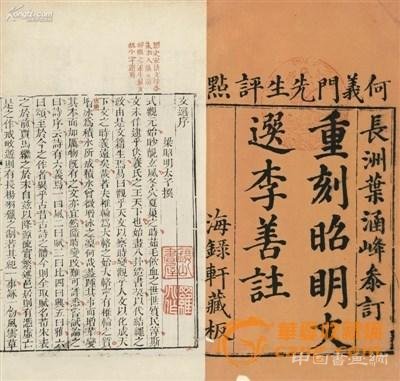 何義門先生評點
長洲葉涵峰參訂
重刻昭明文
選李善註
海錄軒藏板
文選序
梁昭明太子撰
式觀元始眇覿玄風冬穴夏巢之時茹毛飲血之世世質民淳斯
文未作逮乎伏羲氏之王天下也始畫八卦造書契以代結繩之
政由是文籍生焉易曰觀乎天文以察時變觀乎人文以化成天
下文之時義遠矣哉若夫椎輪為大輅之始大輅寧有椎輪之質
增冰為積水所成積水曾微增冰之凜何哉蓋踵其事而增華變
其本而加厲物既有之文亦宜然隨時變改難可詳悉嘗試論之
曰詩序云詩有六義焉一曰風二曰賦三曰比四曰興五曰雅六
曰頌至於今之作者異乎古昔古詩之體今則全取賦名荀宋表
之於前賈馬繼之於末自茲以降源流寔繁述邑居則有憑虛亡
是之作戒畋遊則有長楊羽獵之制若其紀一事詠一物風雲草